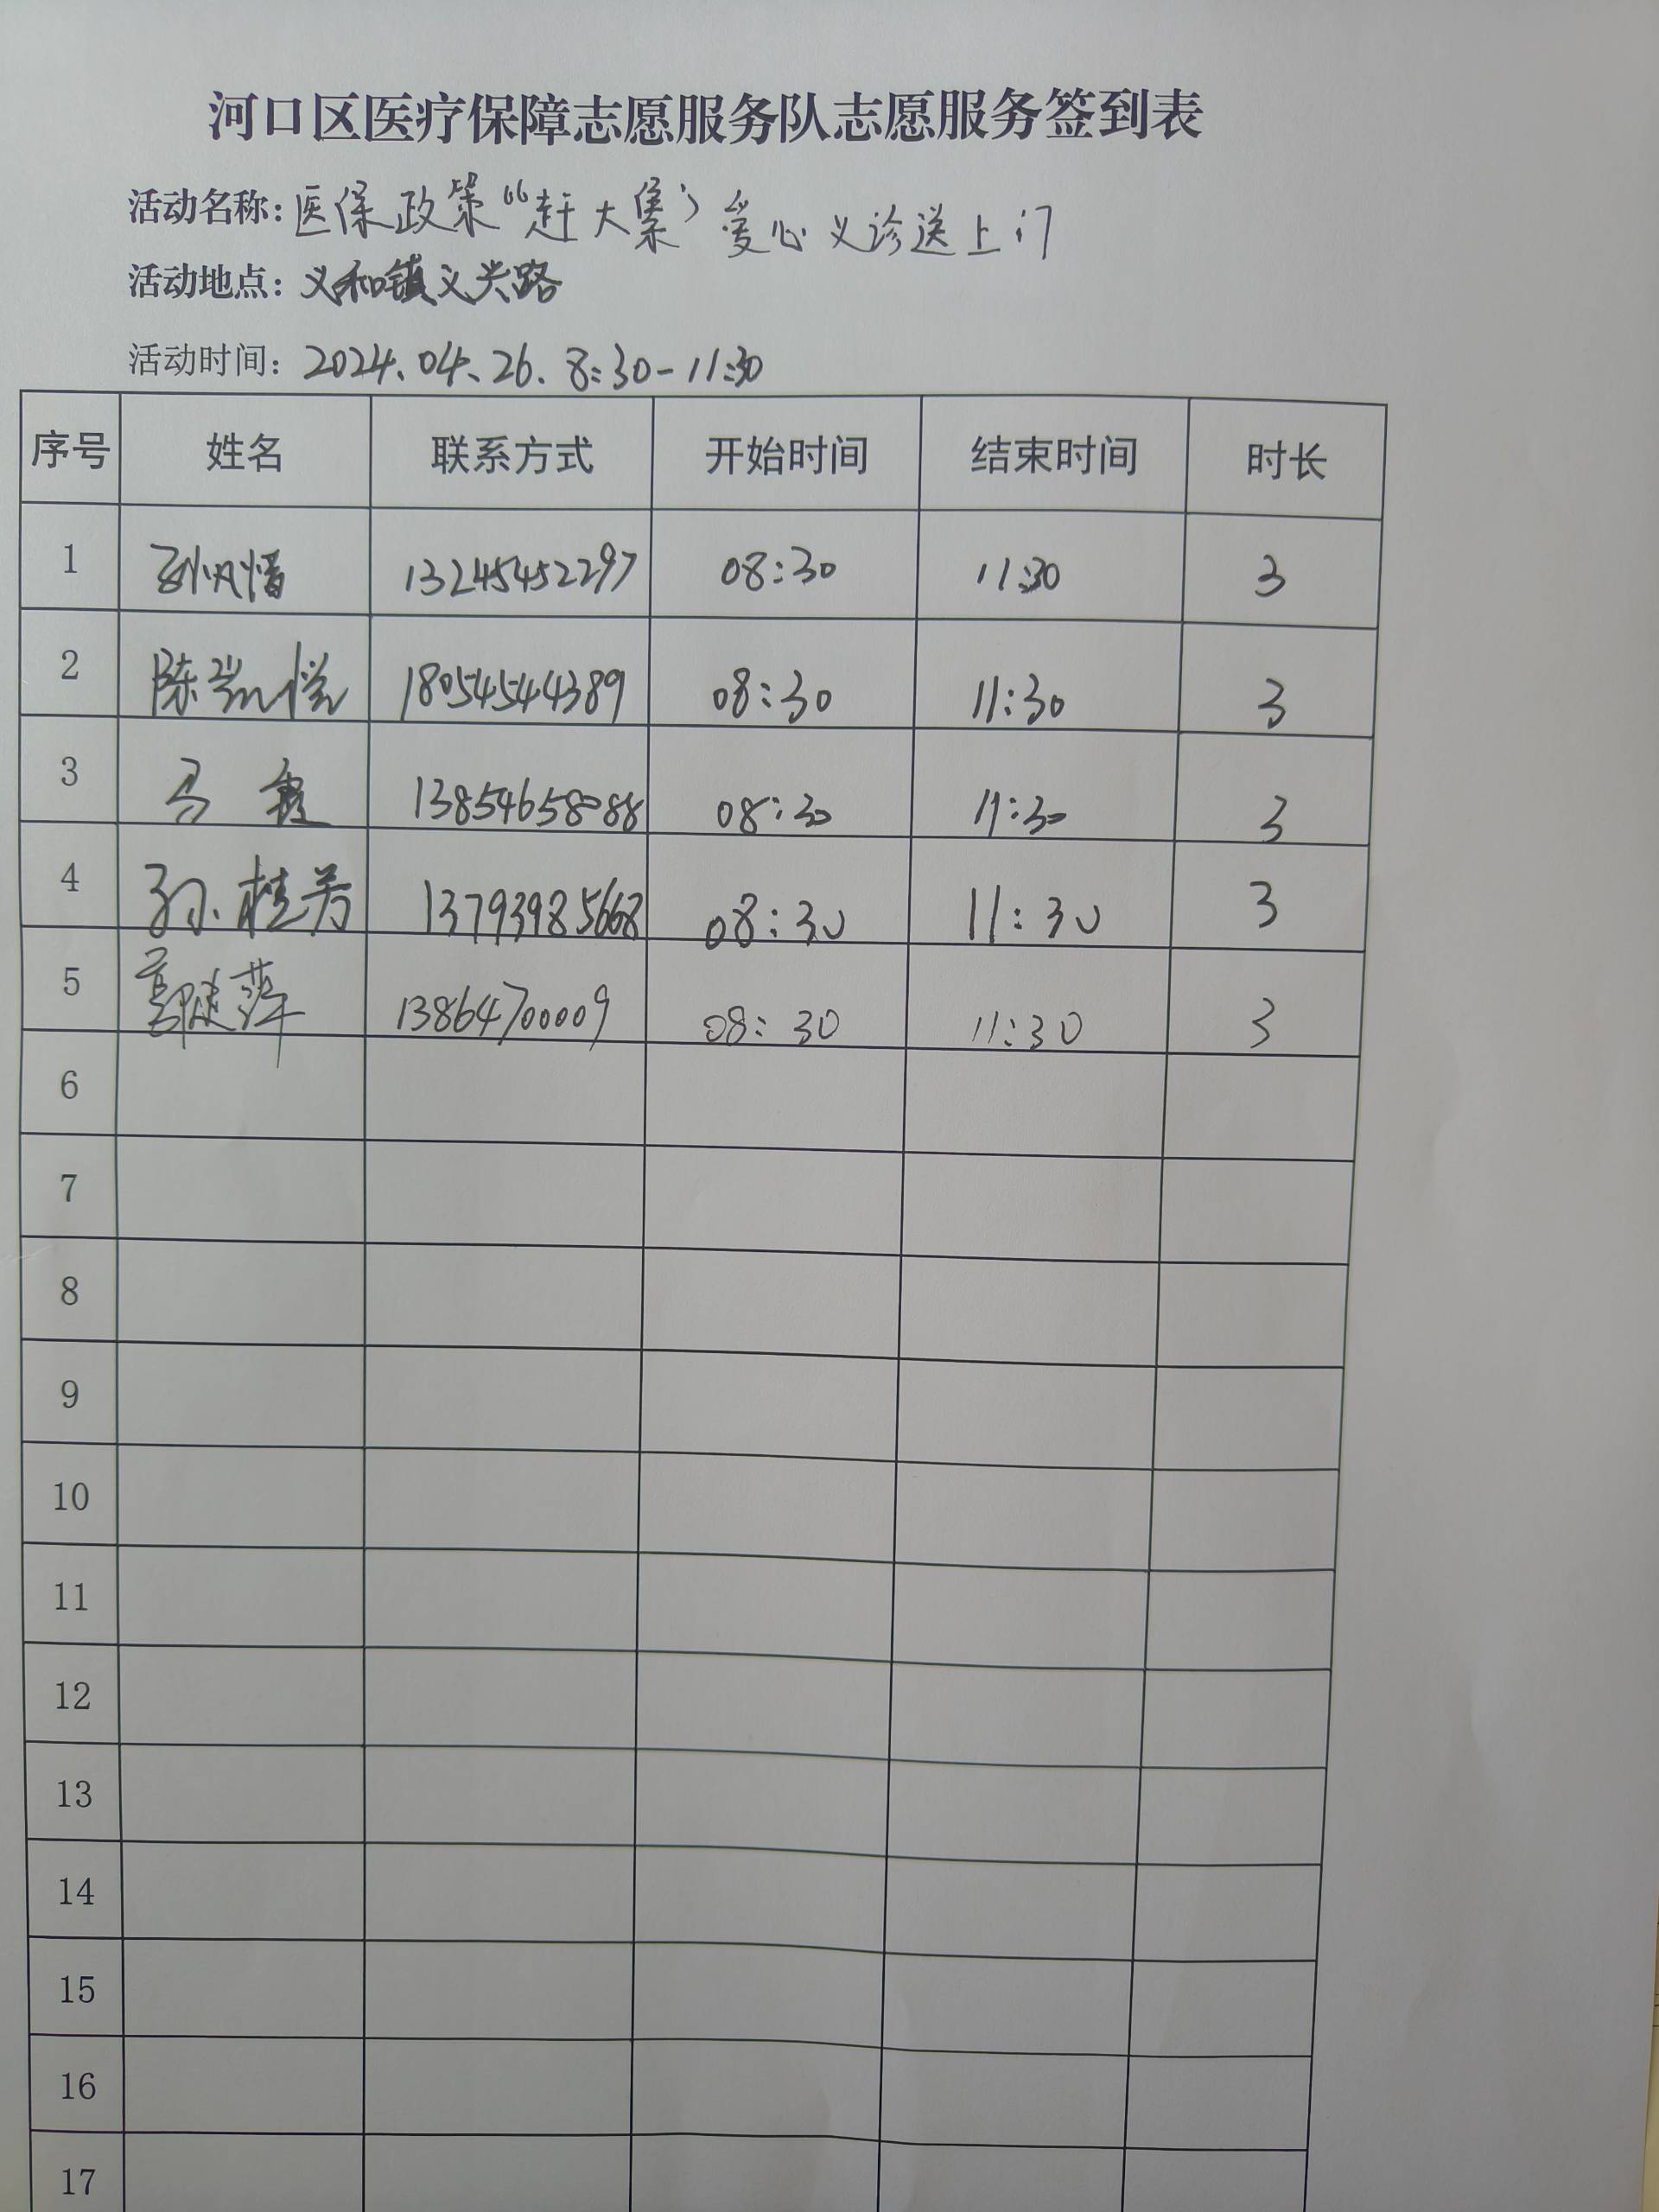 河口区医疗保障志愿服务队志愿服务签到表
活动名称:医保政策“赶大集”爱心义诊送上门
活动地点:义和镇义兴路
活动时间:2024.04.26.8:30-11:30
序号 姓名 联系方式 开始时间 结束时间 时长
1 13245452297 08:30 11:30 3
2 陈凯悦 18054544389 08:30 11:30 3
3 马鑫 13854658088 08:30 11:30 3
4 孙桂芳 13793985668 08:30 11:30 3
5 郭建萍 13864700009 08:30 11:30 3
6
7
8
9
10
11
12
13
14
15
16
17